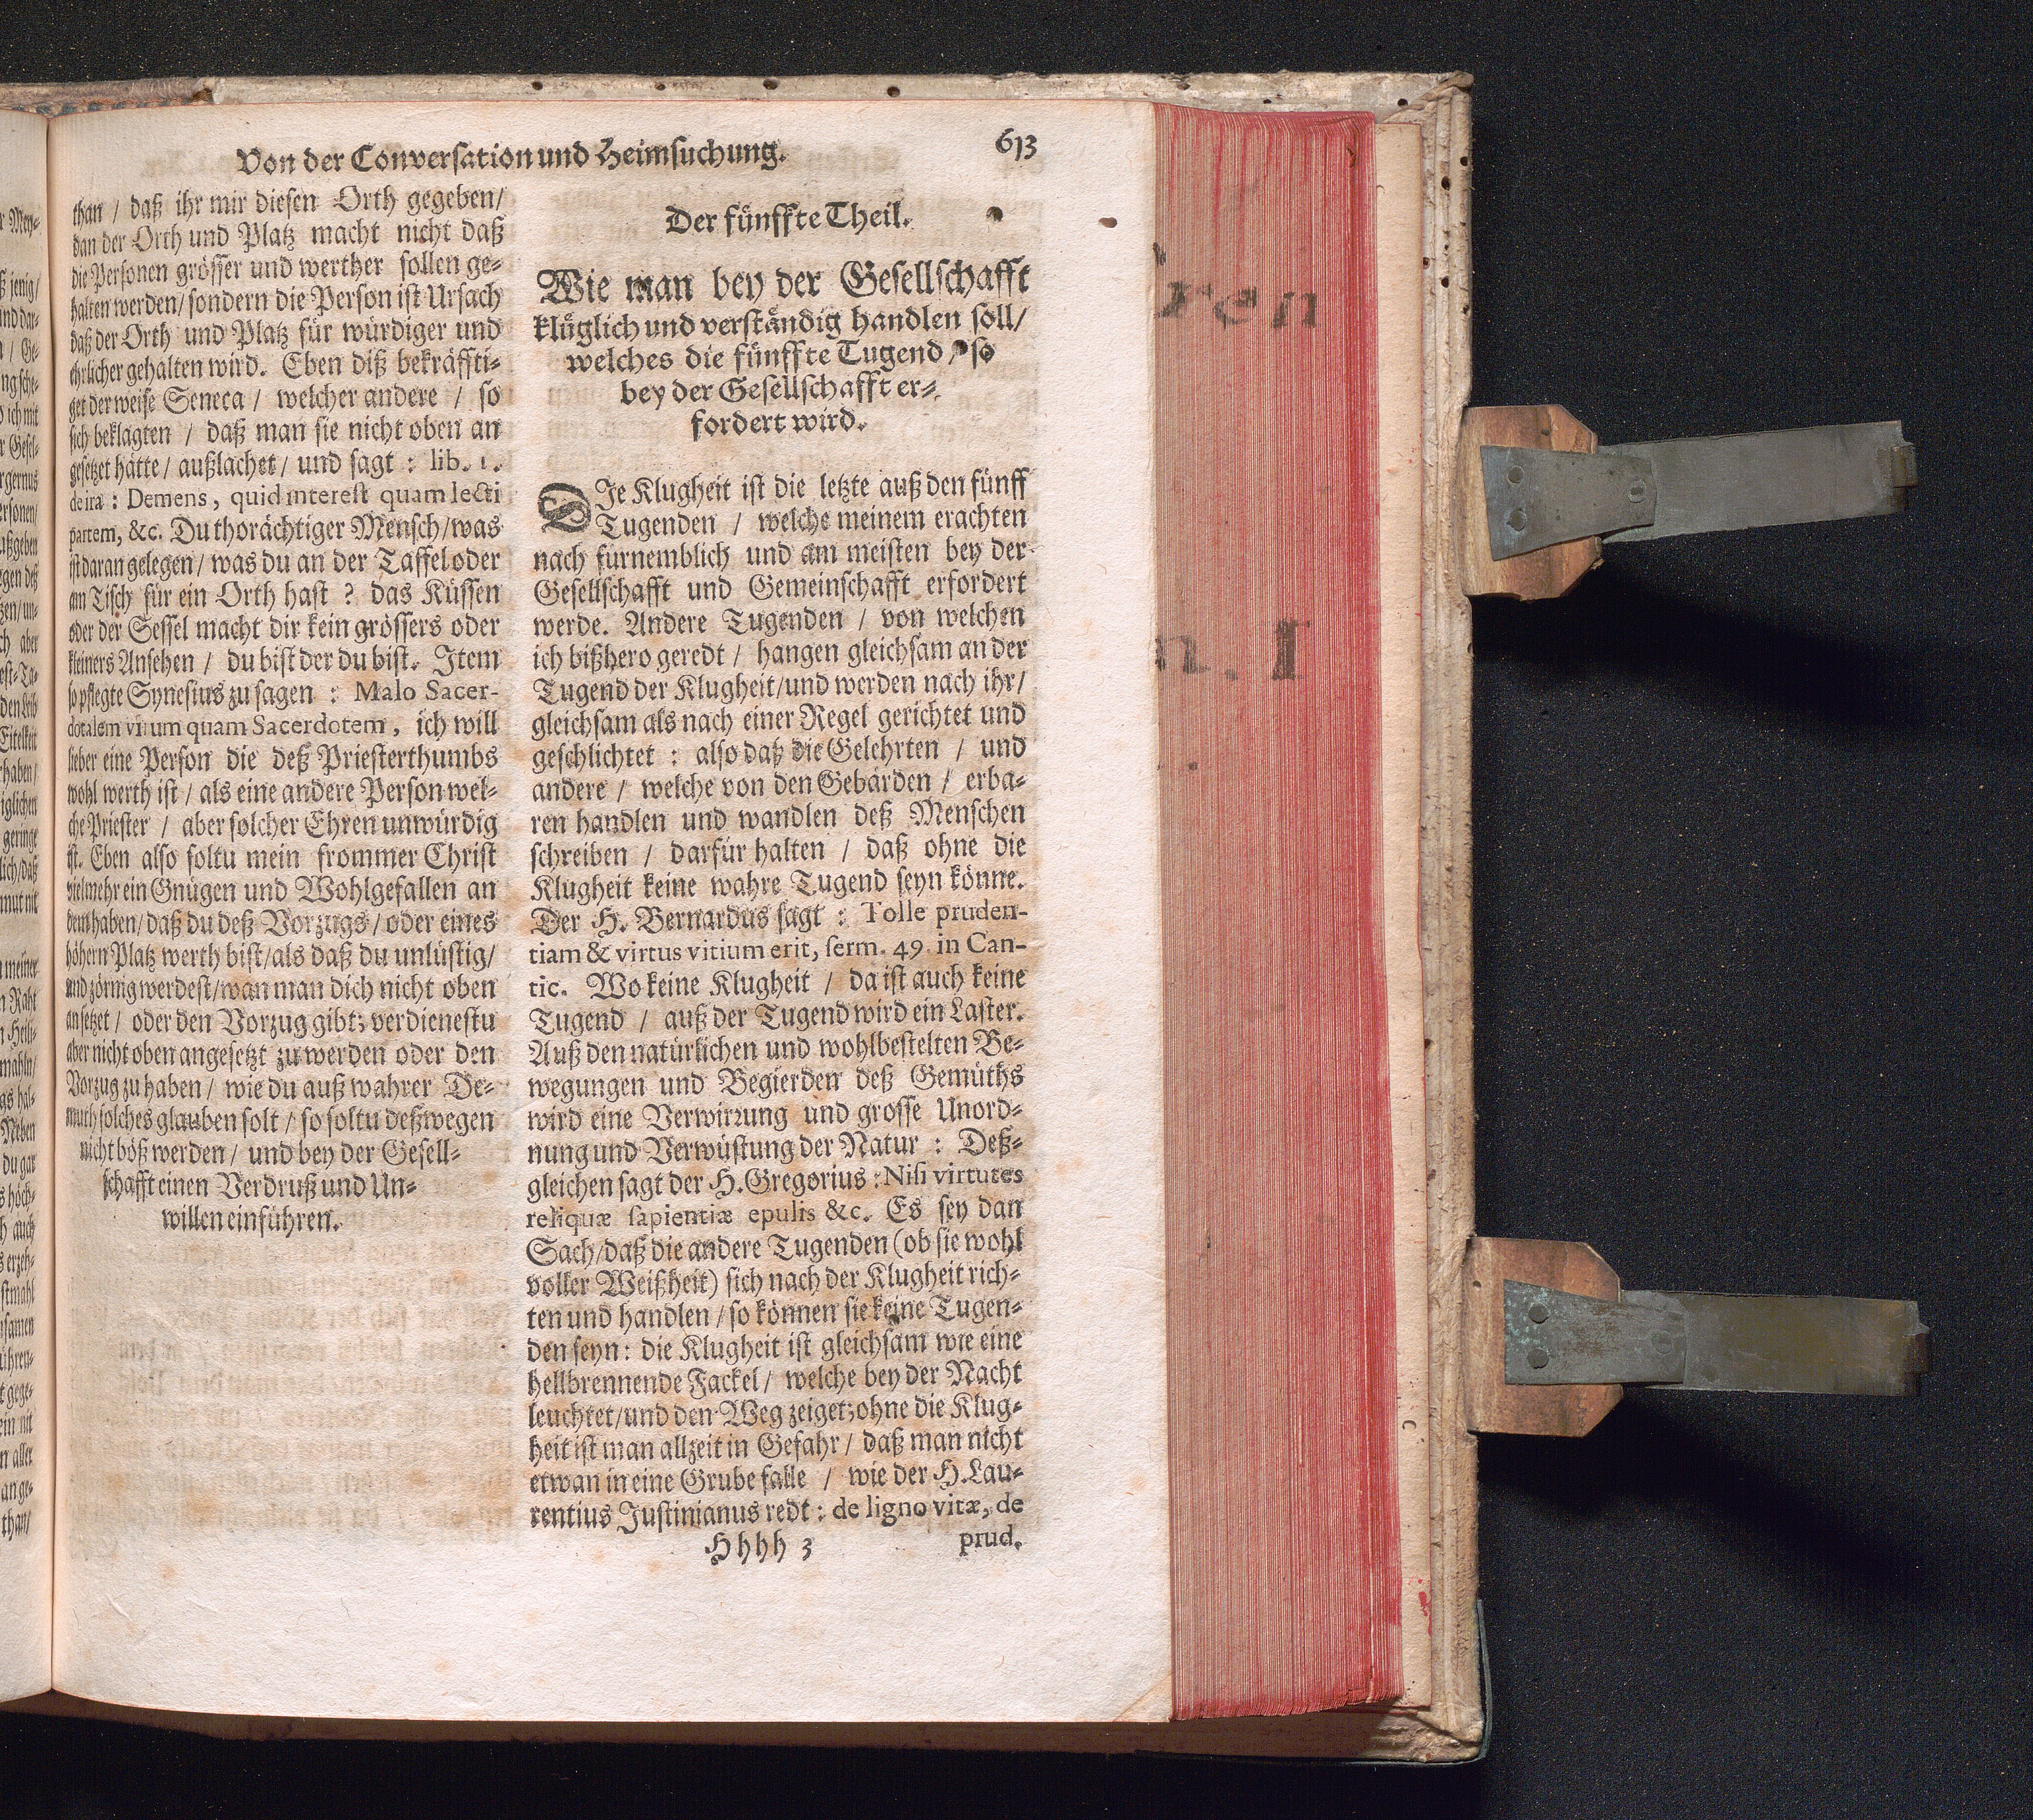 Von der Conversation und Heimsuchung.
613
than / daß ihr mir diesen Orth gegeben/
dan der Orth und Platz macht nicht daß
die Personen grösser und werther sollen ge-
halten werden/ sondern die Person ist Ursach
daß der Orth und Platz für würdiger und
ehrlicher gehalten wird. Eben diß bekräffti-
get der weise Seneca / welcher andere / so
sich beklagten / daß man sie nicht oben an
gesetzet hätte / außlachet / und sagt : lib. 1.
de ira : Demens, quid interest quam lecti
partem, &c. Du thorächtiger Mensch/ was
ist daran gelegen / was du an der Taffel oder
am Tisch für ein Orth hast ? das Küssen
oder der Sessel macht dir kein grössers oder
kleiners Ansehen / du bist der du bist. Item
so pflegte Synesius zu sagen : Malo Sacer-
dotalem virum quam Sacerdotem, ich will
lieber eine Person die deß Priesterthumbs
wohl werth ist / als eine andere Person wel-
che Priester / aber solcher Ehren unwürdig
ist. Eben also soltu mein frommer Christ
vielmehr ein Gnügen und Wohlgefallen an
dem haben / daß du deß Vorzugs / oder eines
höhern Platz werth bist/ als daß du unlüstig/
und zörnig werdest/ wan man dich nicht oben
ansetzet / oder den Vorzug gibt; verdienestu
aber nicht oben angesetzt zu werden oder den
Vorzug zu haben / wie du auß wahrer De-
muth solches glauben solt / so soltu deßwegen
nicht böß werden / und bey der Gesell-
schafft einen Verdruß und Un-
willen einführen.
Der fünffte Theil.
Wie man bey der Gesellschafft
klüglich und verständig handlen soll/
welches die fünffte Tugend / so
bey der Gesellschafft er-
fordert wird.
DIe Klugheit ist die letzte auß den fünff
Tugenden / welche meinem erachten
nach fürnemblich und am meisten bey der
Gesellschafft und Gemeinschafft erfordert
werde. Andere Tugenden / von welchen
ich bißhero geredt / hangen gleichsam an der
Tugend der Klugheit/und werden nach ihr/
gleichsam als nach einer Regel gerichtet und
geschlichtet : also daß die Gelehrten / und
andere / welche von den Gebärden / erba-
ren handlen und wandlen deß Menschen
schreiben / darfür halten / daß ohne die
Klugheit keine wahre Tugend seyn könne.
Der H. Bernardus sagt : Tolle pruden-
tiam & virtus vitium erit, serm. 49. in Can-
tic. Wo keine Klugheit / da ist auch keine
Tugend / auß der Tugend wird ein Laster.
Auß den natürlichen und wohlbestelten Be-
wegungen und Begierden deß Gemüths
wird eine Verwirrung und grosse Unord-
nung und Verwüstung der Natur : Deß-
gleichen sagt der H. Gregorius : Nisi virtutes
reliquæ sapientiæ epulis &c. Es sey dan
Sach/ daß die andere Tugenden (ob sie wohl
voller Weißheit) sich nach der Klugheit rich-
ten und handlen / so können sie keine Tugen-
den seyn: die Klugheit ist gleichsam wie eine
hellbrennende Fackel / welche bey der Nacht
leuchtet/und den Weg zeiget; ohne die Klug-
heit ist man allzeit in Gefahr / daß man nicht
etwan in eine Grube falle / wie der H. Lau-
rentius Justinianus redt : de ligno vitæ, de
Hhhh 3
prud.
ren
n. I